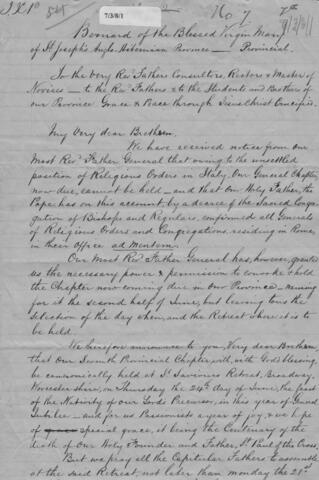 J.X.P.
7/3/8/1
No 7
Bernard of the Blessed Virgin Mary
of St Joseph's Anglo-Hibernian Province — Provincial.
To the Very Revd Fathers Consultors, Rectors & Master of
Novices — to the Revd Fathers & to the Students and Brothers of
our Province Grace & Peace through Jesus Christ Crucified.
My Very dear Brethren,
We have received notice from Our
Most Revd Father General that owing to the unsettled
position of Religious Orders in Italy, Our General Chapter,
now due, cannot be held — and that Our Holy Father, the
Pope has on this account, by a decree of the Sacred Congre-
gation of Bishops and Regulars, confirmed all Generals
of Religious Orders and Congregations, residing in Rome,
in their Office ad mentem.
Our Most Revd Father General has, however, granted
us the necessary power & permission to convoke & hold
the Chapter now coming due in our Province — naming
for it the second half of June, but leaving to us the
selection of the day when, and the Retreat where it is to
be held.
We therefore announce to you, Very dear Brethren,
that Our Seventh Provincial Chapter, will, with God's blessing,
be canonically held at St Saviour's Retreat, Broadway,
Worcestershire, on Thursday the 24th day of June, the feast
of the Nativity of Our Lord's Precursor, in this year of Grand
Jubilee — and for us Passionists a year of joy & we hope
of special grace, it being the Centenary of the
death of Our Holy Founder and Father, St Paul of the Cross,
But we pray all the Capitular Fathers to assemble
at the said Retreat, not later than Monday the 21st